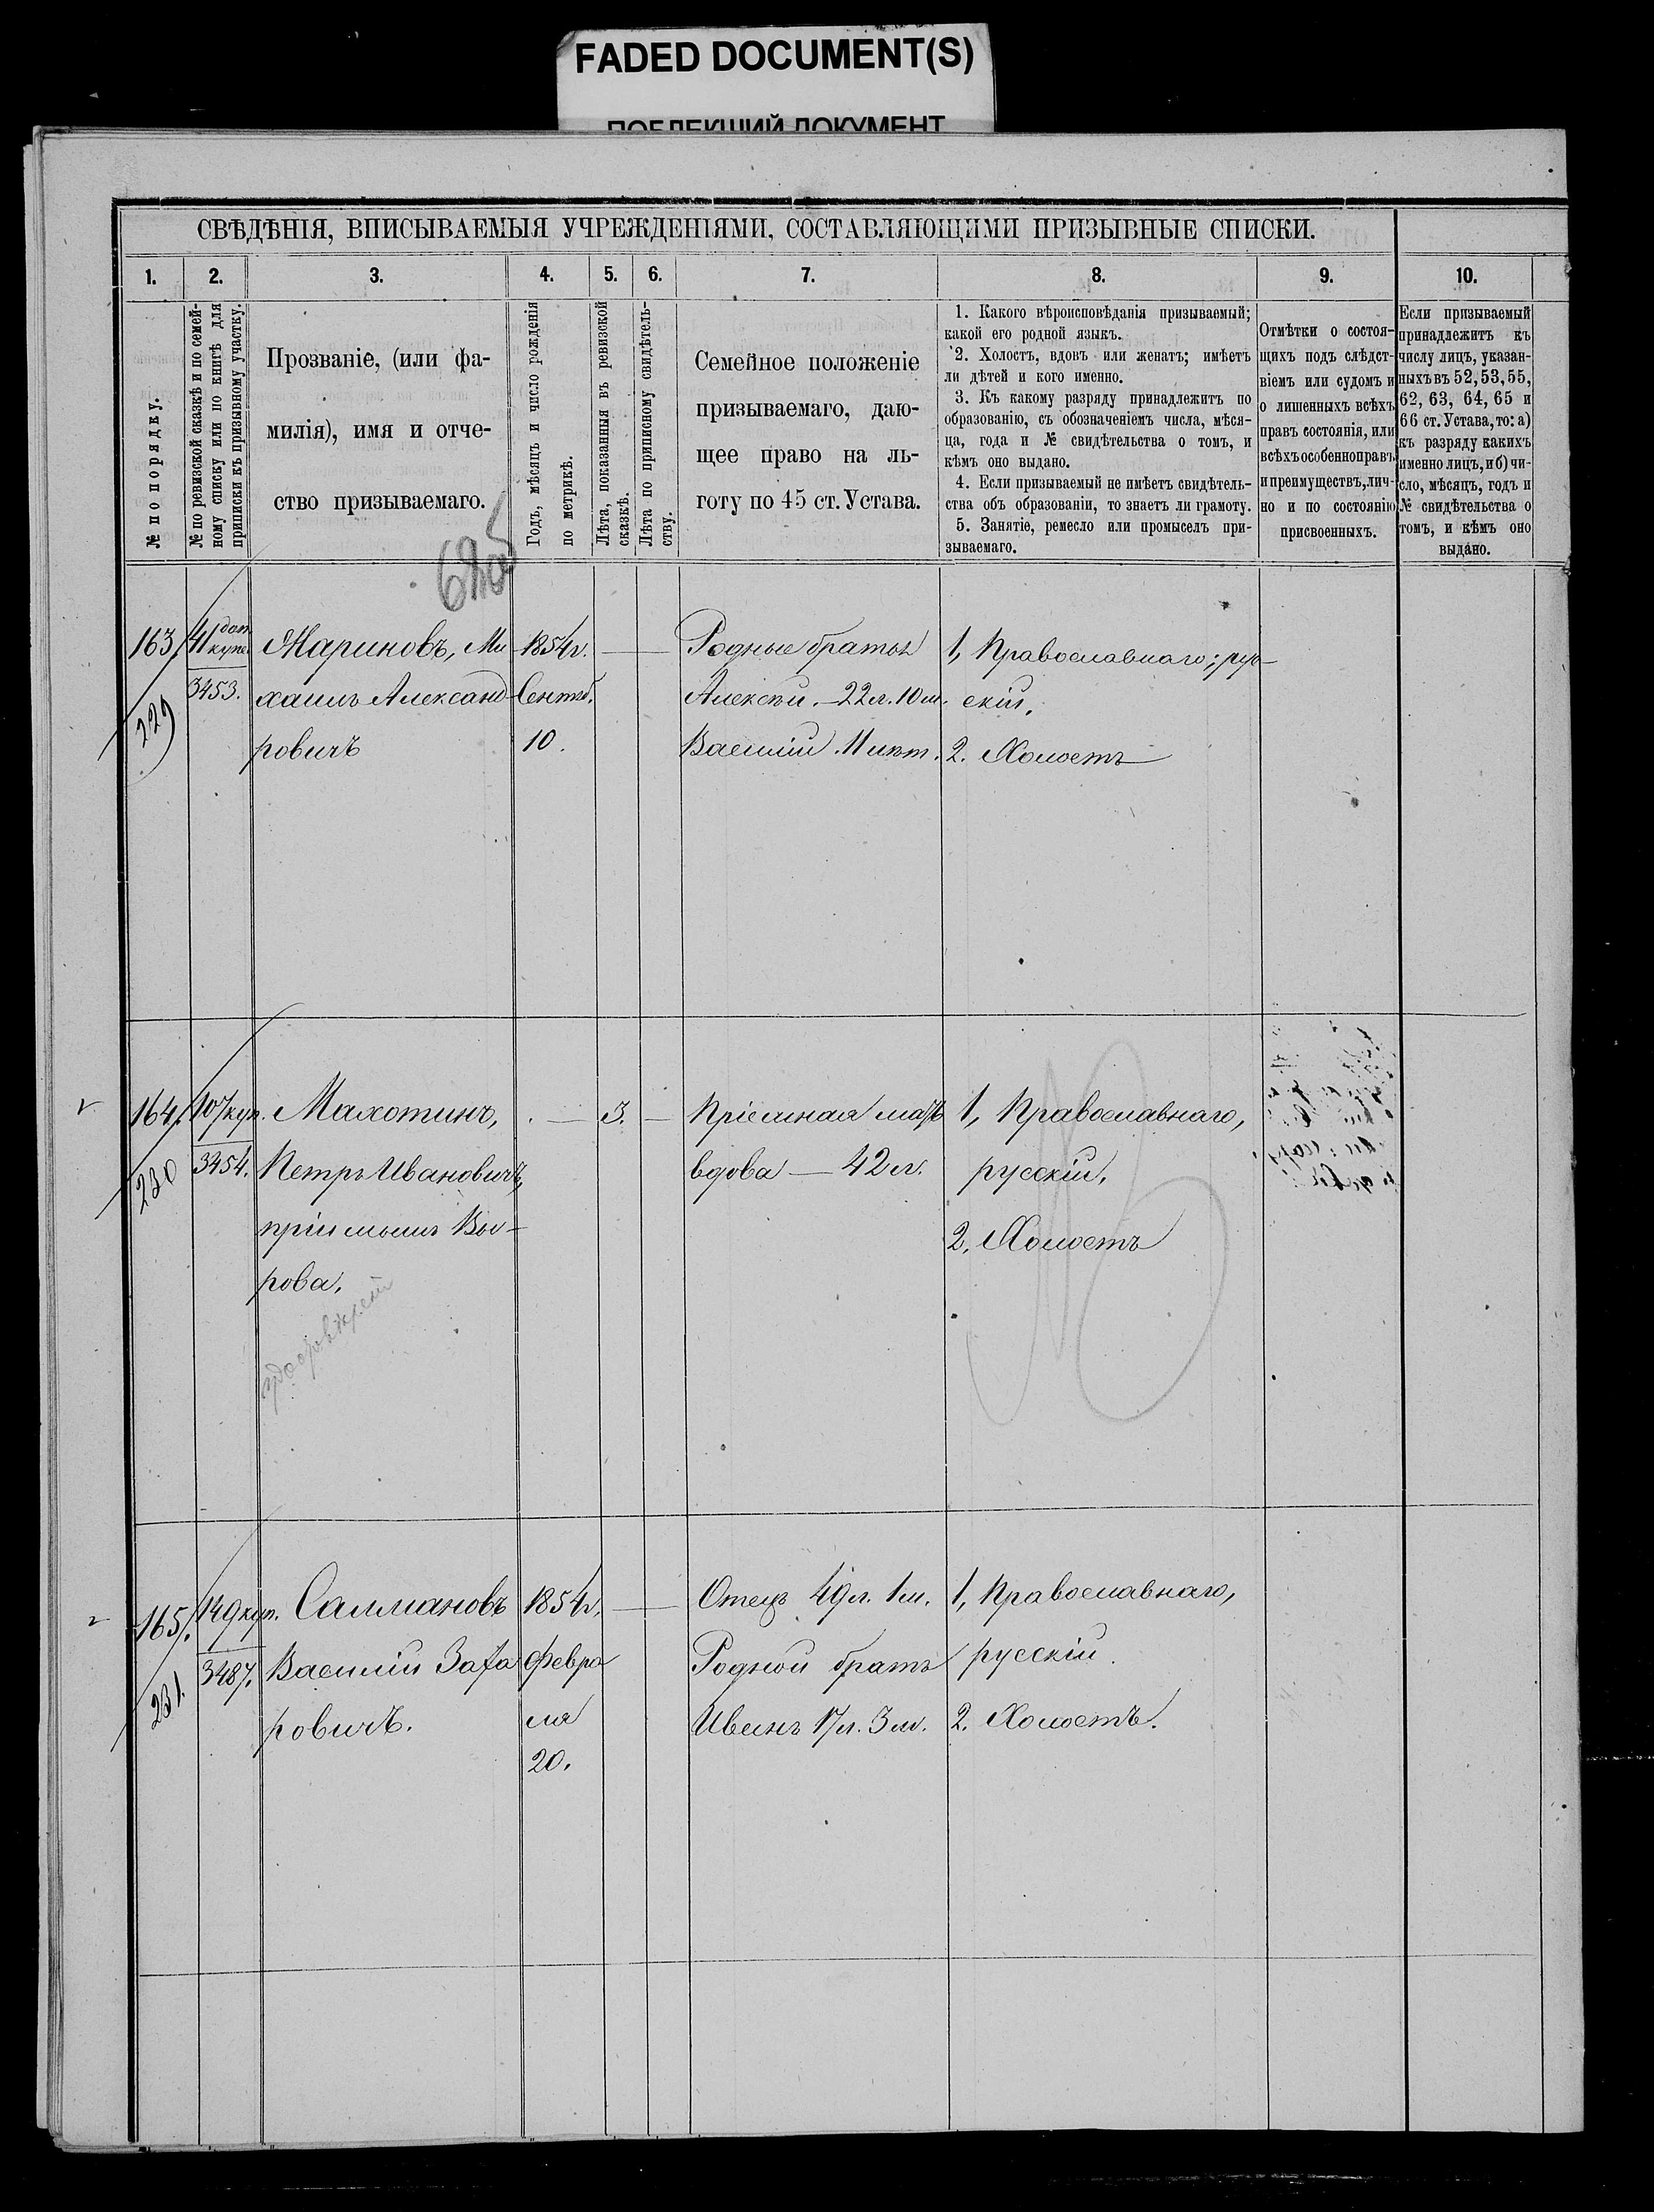 FADED DOCUMENT(S)
ПОБЛЕКШИЙ ДОКУМЕНТ
СВѢДѢНІЯ, ВПИСЫВАЕМЫЯ УЧРЕЖДЕНІЯМИ, СОСТАВЛЯЮЩИМИ ПРИЗЫВНЫЕ СПИСКИ.
1. 2. 3. 4. 5. 6. 7. 8. 9. 10.
№ по порядку.
№ по ревизской сказкѣ и по семей-
ному списку или по книгѣ для
приписки къ призывному участку.
Прозваніе, (или фа-
милія), имя и отче-
ство призываемаго.
Годъ, мѣсяцъ и число рожденія
по метрикѣ.
Лѣта, показанныя въ ревизской
сказкѣ.
Лѣта по приписному свидѣтель-
ству.
Семейное положеніе
призываемаго, даю-
щее право на ль-
готу по 45 ст. Устава.
1. Какого вѣроисповѣданія призываемый;
какой его родной языкъ.
2. Холостъ, вдовъ или женатъ; имѣетъ
ли дѣтей и кого именно.
3. Къ какому разряду принадлежитъ по
образованію, съ обозначеніемъ числа, мѣся-
ца, года и № свидѣтельства о томъ, и
кѣмъ оно выдано.
4. Если призываемый не имѣетъ свидѣтель-
ства объ образованіи, то знаетъ ли грамоту.
5. Занятіе, ремесло или промыселъ при-
зываемаго.
Отмѣтки о состоя-
щихъ подъ слѣдст-
віемъ или судомъ и
о лишенныхъ всѣхъ
правъ состоянія, или
всѣхъ особенно правъ
и преимуществъ, лич-
но и по состоянію
присвоенныхъ.
Если призываемый
принадлежитъ къ
числу лицъ, указан-
ныхъ въ 52, 53, 55,
62, 63, 64, 65 и
66 ст. Устава, то: а)
къ разряду какихъ
именно лицъ, и б) чи-
сло, мѣсяцъ, годъ и
№ свидѣтельства о
томъ, и кѣмъ оно
выдано.
163.
229
41 доп.
купе.
3453.
Жариновъ, Ми
хаилъ Александ-
ровичъ
1854 г.
Сентяб.
10.
Родные братья
Алексѣй. — 22 л. 10 м.
Василій 11 лѣт.
1, Православнаго; рус-
скій,
2. Холостъ
164.
230
107 куп.
3454.
Махотинъ,
Петръ Ивановичъ,
пріимышъ Вы-
рова.
3.
Пріемная мать
вдова — 42 л.
1, Православнаго,
русскій,
2. Холостъ
165.
231.
149 куп.
3487.
Салмановъ
Василій Заха
ровичъ.
1854 г.
Февра
ля
20.
Отецъ 49 л. 1 м.
Родной братъ
Иванъ 17 л. 3 м.
1, Православнаго,
русскій.
2. Холостъ.